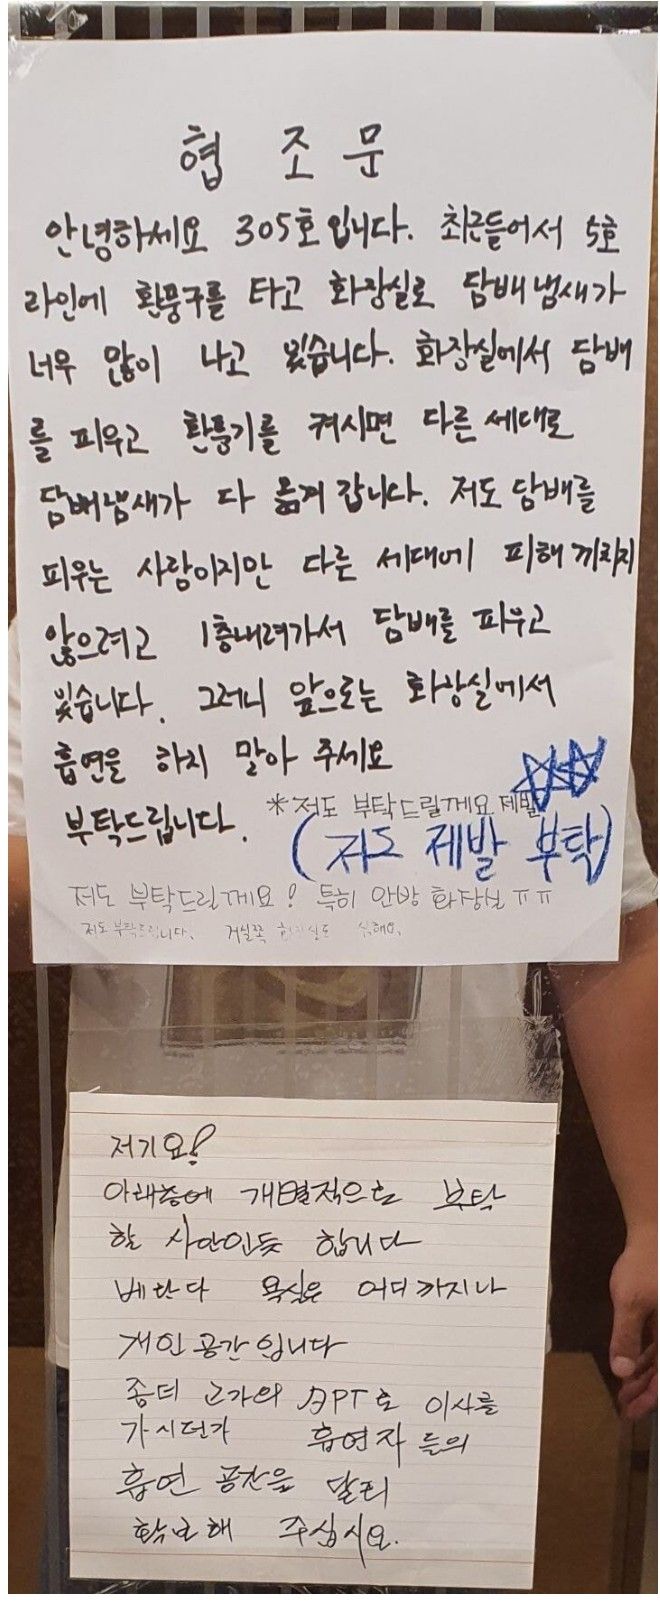 협 조 문
안녕하세요 305호입니다. 최근들어서 5호
라인에 환풍구를 타고 화장실로 담배냄새가
너무 많이 나고 있습니다. 화장실에서 담배
를 피우고 환풍기를 켜시면 다른 세대로
담배냄새가 다 옮겨 갑니다. 저도 담배를
피우는 사람이지만 다른 세대에 피해 끼치지
않으려고 1층내려가서 담배를 피우고
있습니다. 그러니 앞으로는 화장실에서
흡연을 하지 말아 주세요
부탁드립니다.
*저도 부탁드릴께요 제발
(저도 제발 부탁)
저도 부탁드릴께요! 특히 안방 화장실 ㅠㅠ
저도 부탁드립니다. 거실쪽 화장실도 심해요.
저기요!
아래층에 개별적으로 부탁
할 사안인듯 합니다
베란다 욕실은 어디까지나
개인공간입니다
좀더 고가의 APT로 이사를
가시던가 흡연자들의
흡연 공간을 달리
확보해 주십시요.